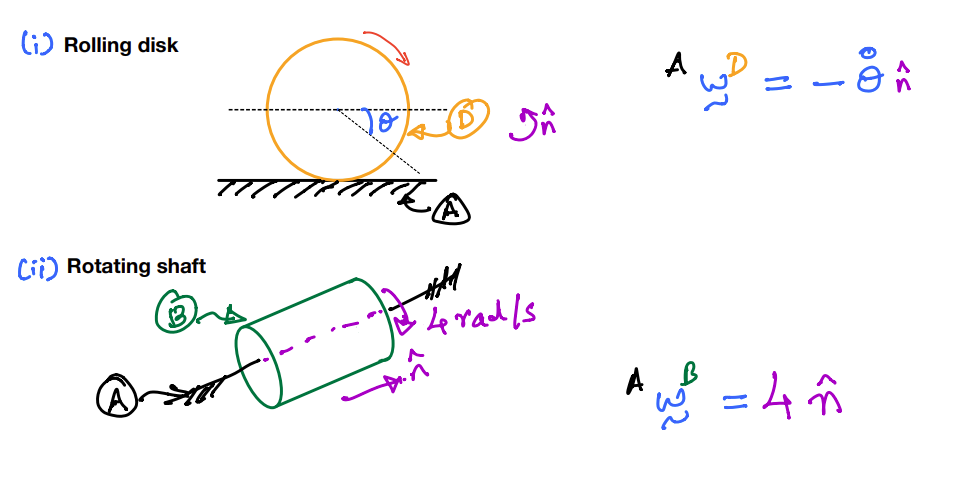 (i) Rolling disk
A ω D = - θ̇ n̂
θ
D
n̂
A
(ii) Rotating shaft
B
4 rad/s
n̂
A
A ω B = 4 n̂